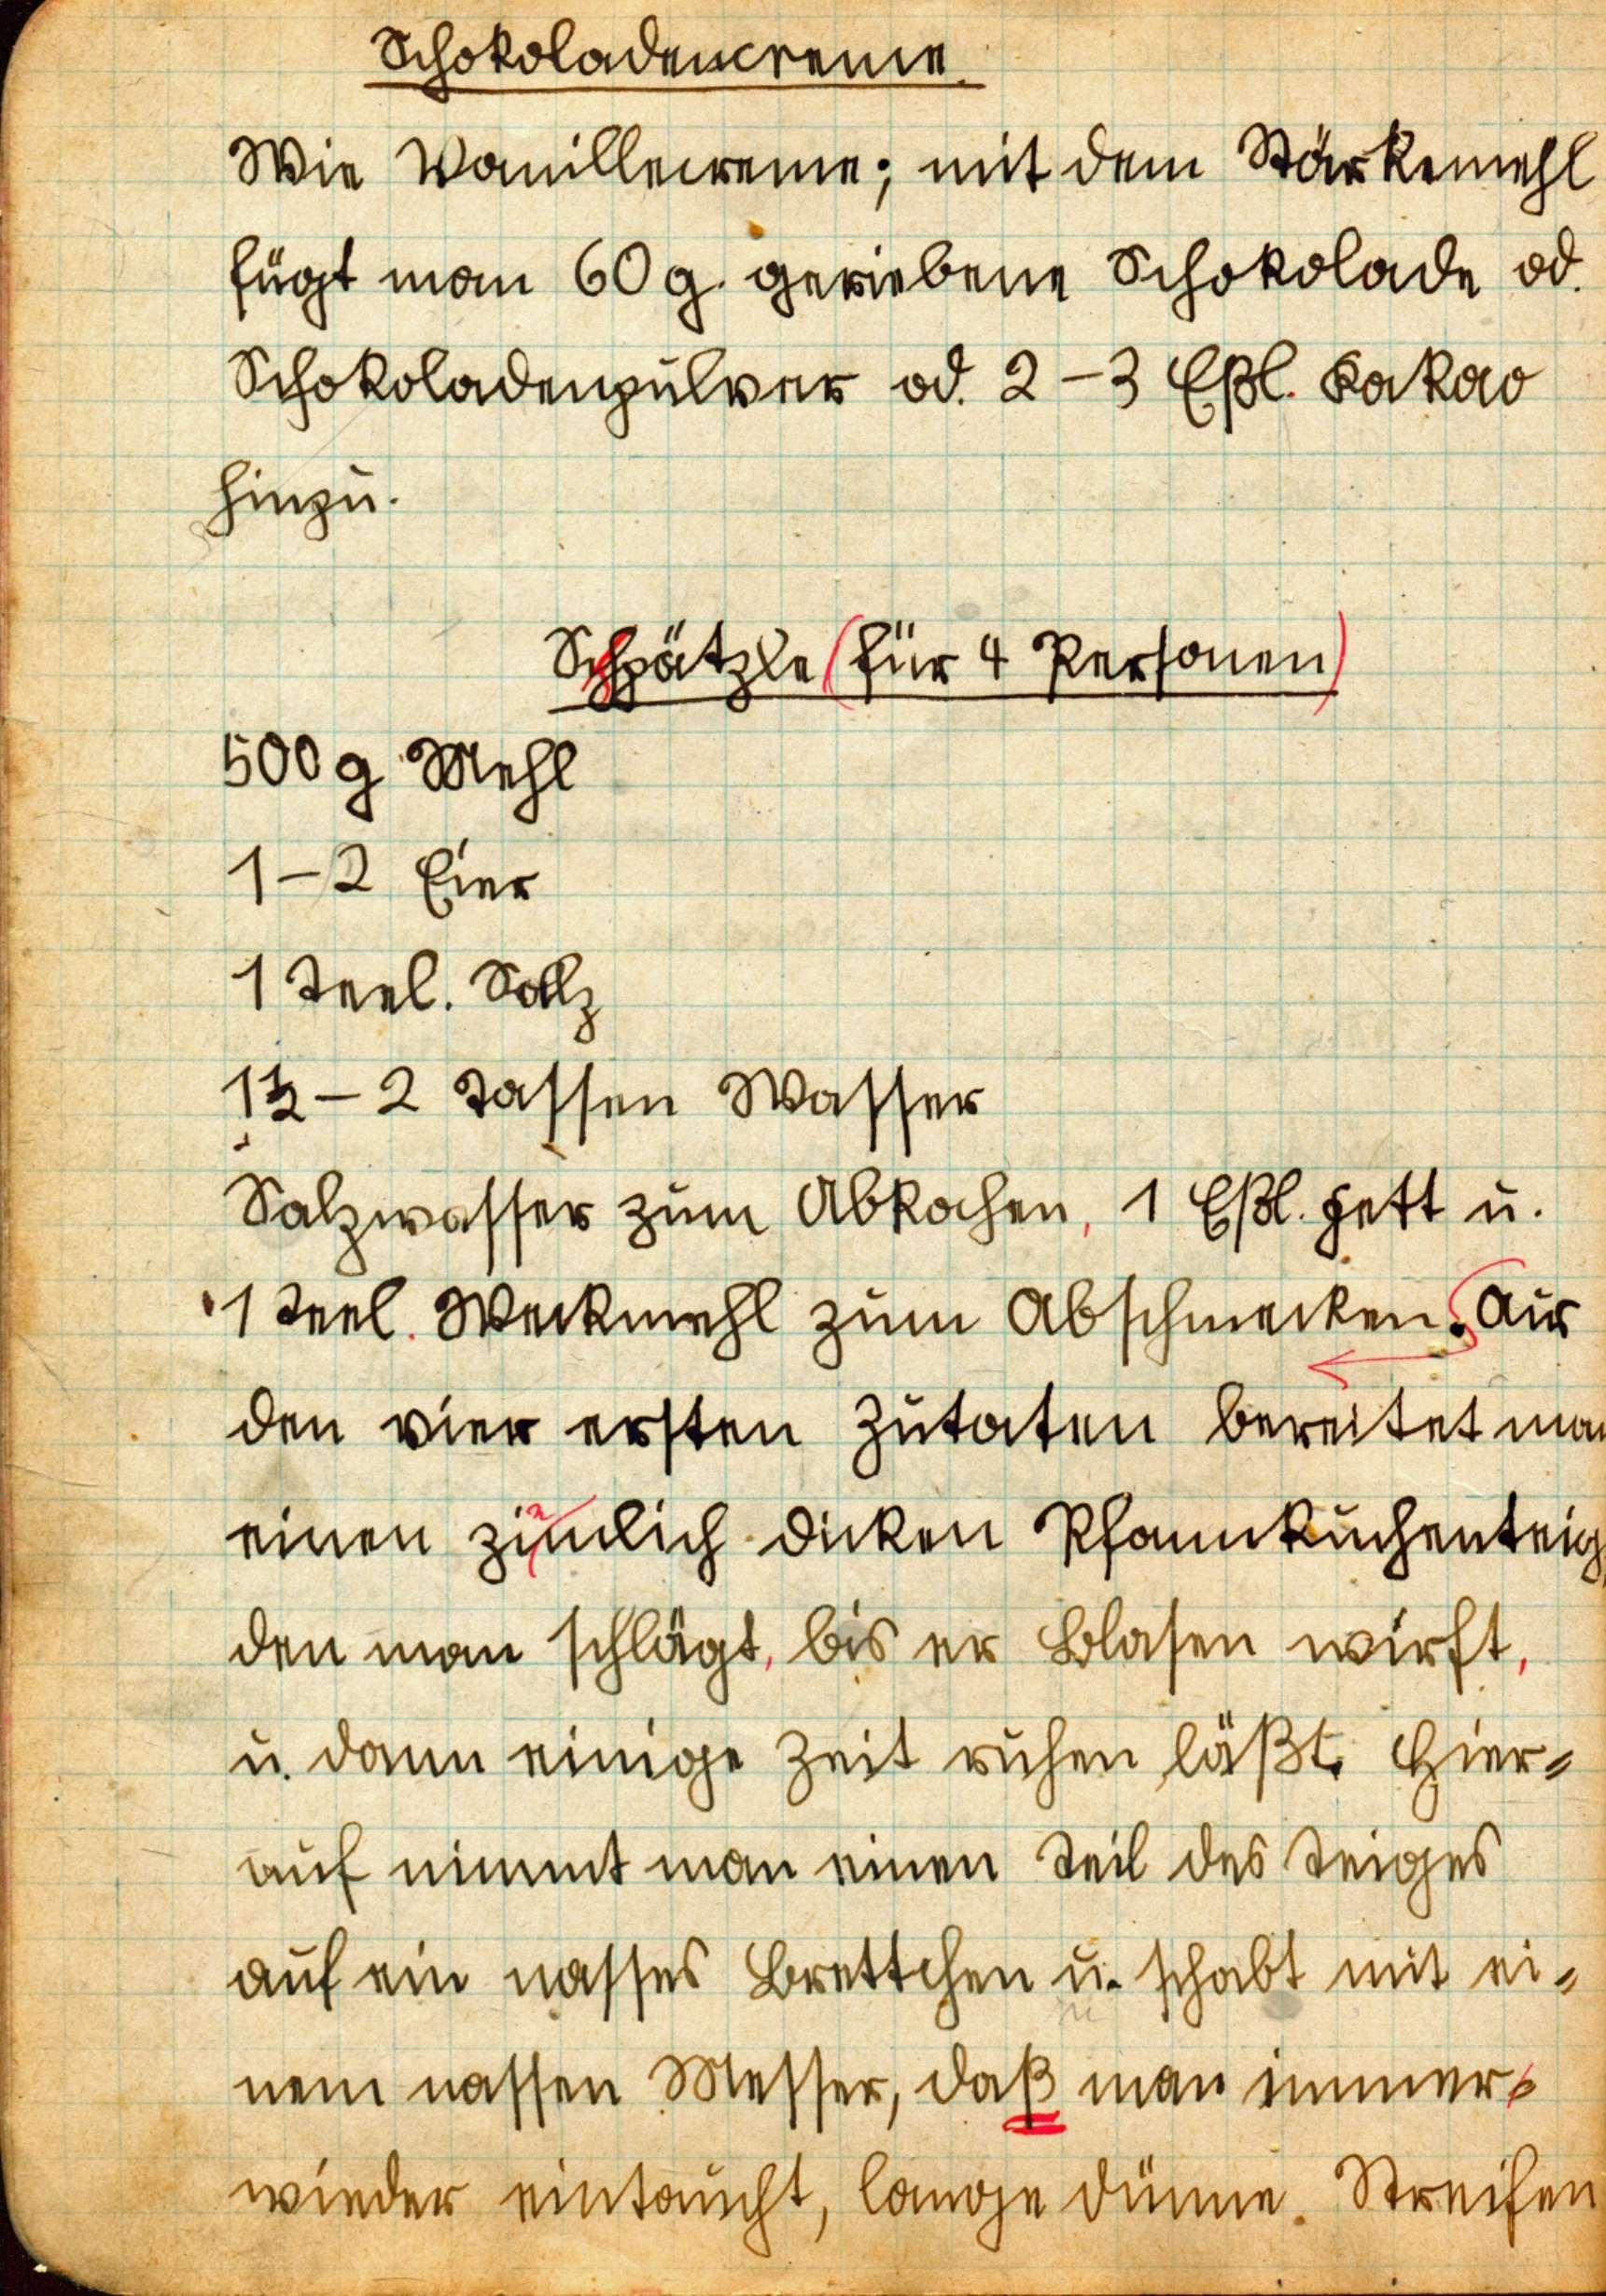 Schokoladencreme.
Wie Vanillecreme; mit dem Stärkemehl
fügt man 60 g. geriebene Schokolade od.
Schokoladenpulver od. 2-3 Eßl. Kakao
hinzu.
Schpätzle (für 4 Personen)
500 g Mehl
1-2 Eier
1 Teel. Salz
1½-2 Tassen Wasser
Salzwasser zum Abkochen, 1 Eßl. Fett u.
1 Teel. Weckmehl zum Abschmecken. Aus
den vier ersten Zutaten bereitet man
einen zimlich dicken Pfannkuchenteig,
den man schlägt, bis er Blasen wirft,
u. dann einige Zeit ruhen läßt. Hier=
auf nimmt man einen Teil des Teiges
auf ein nasses Brettchen u. schabt mit ei=
nem nassen Messer, daß man immer
wieder eintaucht, lange dünne. Streifen